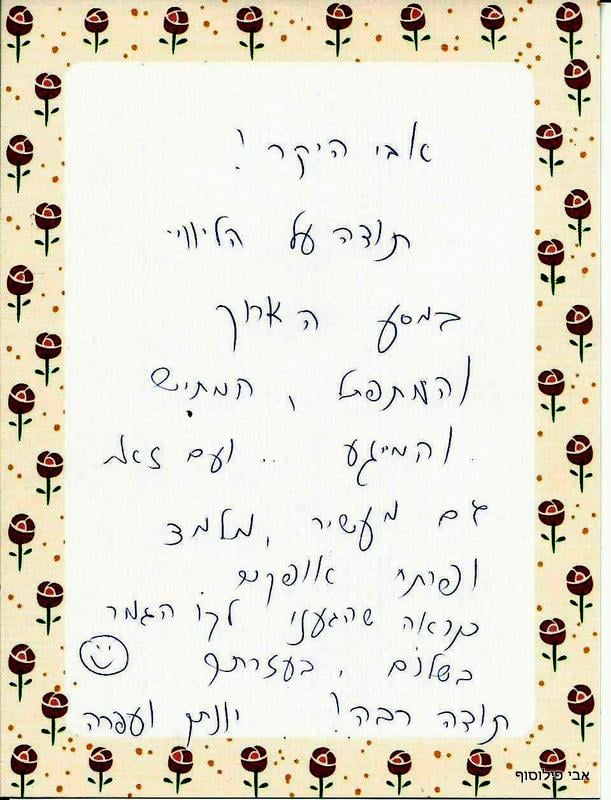 אבי היקר!
תודה על הליווי
במסע הארוך
והמתפתל, המתיש
והמייגע .. ועם זאת
גם מעשיר, מלמד
ופותח אופקים
כנראה שהגענו לקו הגמר
בשלום, בעזרתך
תודה רבה! יונתן ועפרה
אבי פילוסוף